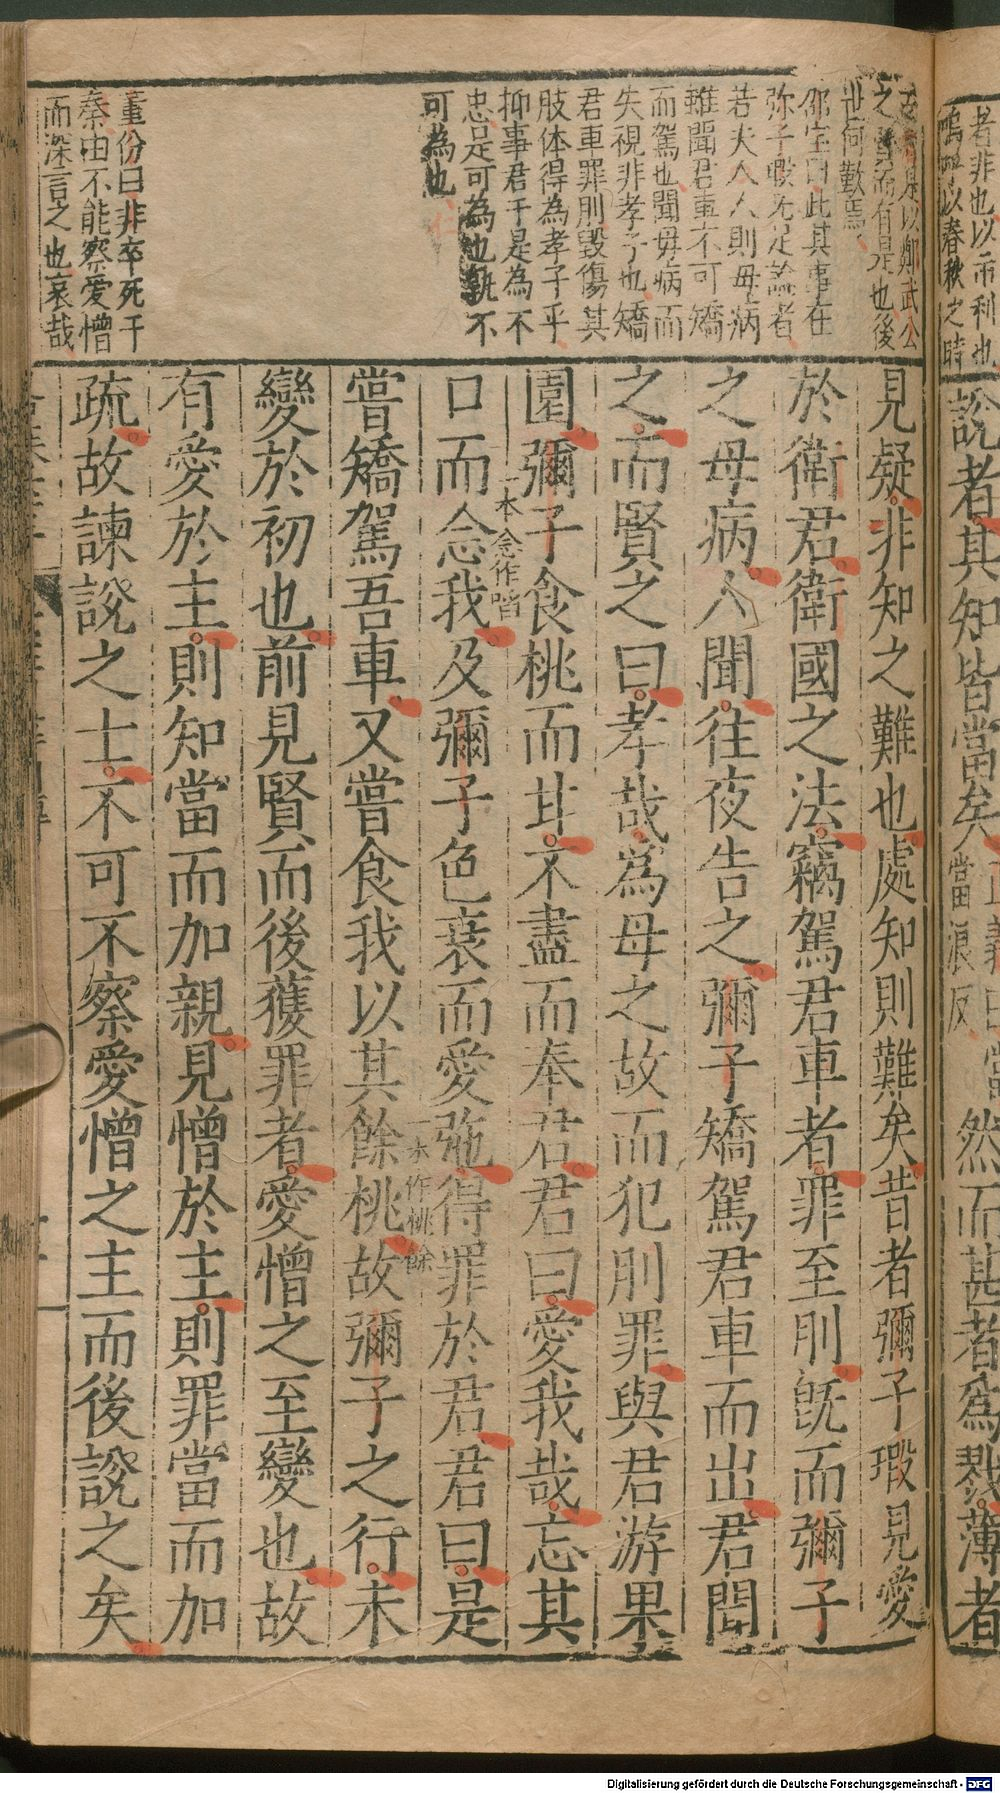 者非也以市利也
嗚呼以春秋之時
說者其知皆當矣
當浪反
然而甚者爲戮薄者
是以鄭武公
之 而有是也後
世何歎焉
邵宝曰此其事在
弥子瑕先足論者
若夫人人則母病
雖聞君車不可矯
而駕也聞母病而
失視非孝子也矯
君車罪刖毀傷其
肢体得為孝子乎
抑事君于是為不
忠是可為也孰不
可為也
董份曰非卒死于
秦由不能察愛憎
而深言之也哀哉
見疑非知之難也處知則難矣昔者彌子瑕見愛
於衛君衛國之法竊駕君車者罪至刖旣而彌子
之母病人聞往夜告之彌子矯駕君車而出君聞
之而賢之曰孝哉爲母之故而犯刖罪與君游果
園彌子食桃而甘不盡而奉君君曰愛我哉忘其
一本念作啗
口而念我及彌子色衰而愛弛得罪於君君曰是
一本作桃餘
嘗矯駕吾車又嘗食我以其餘桃故彌子之行未
變於初也前見賢而後獲罪者愛憎之至變也故
有愛於主則知當而加親見憎於主則罪當而加
疏故諫說之士不可不察愛憎之主而後說之矣
Digitalisierung gefördert durch die Deutsche Forschungsgemeinschaft - DFG